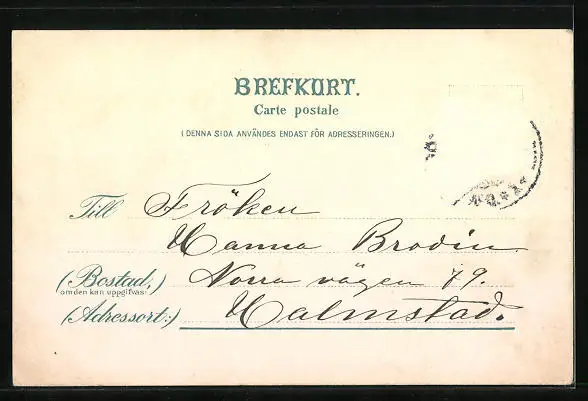 BREFKORT.
Carte postale
(DENNA SIDA ANVÄNDES ENDAST FÖR ADRESSERINGEN.)
Till Fröken
Hanna Brodin
(Bostad,) Norra vägen 79.
om den kan uppgifvas
(Adressort:) Halmstad.